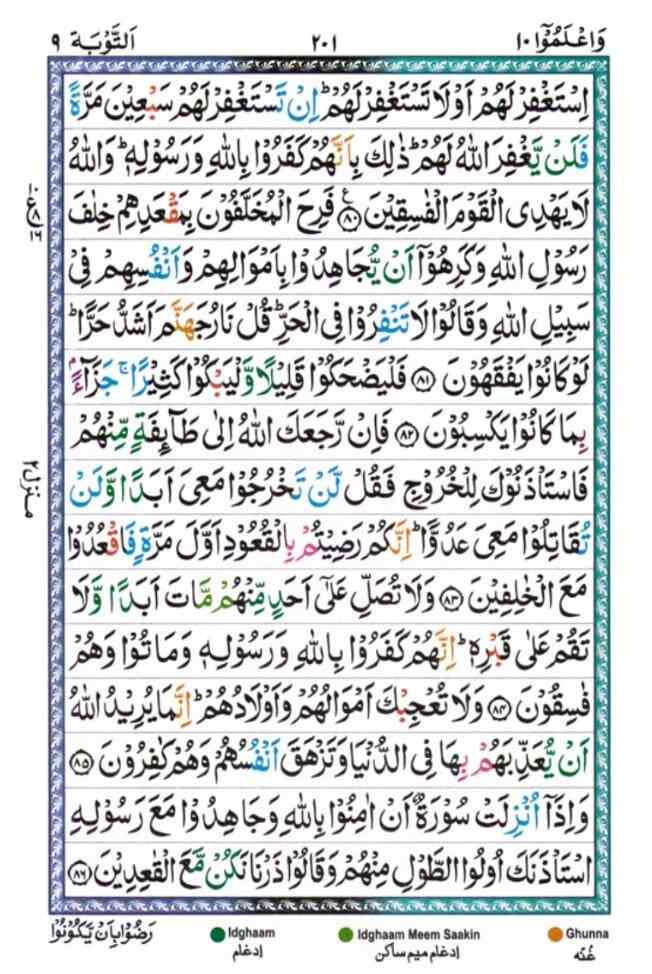 وَاعْلَمُوْۤا ١٠
٢٠١
اَلتَّوْبَة ٩
اِسْتَغْفِرْ لَهُمْ اَوْ لَا تَسْتَغْفِرْ لَهُمْ ؕ اِنْ تَسْتَغْفِرْ لَهُمْ سَبْعِيْنَ مَرَّةً
فَلَنْ يَّغْفِرَ اللّٰهُ لَهُمْ ؕ ذٰلِكَ بِاَنَّهُمْ كَفَرُوْا بِاللّٰهِ وَرَسُوْلِهٖ ؕ وَاللّٰهُ
لَا يَهْدِى الْقَوْمَ الْفٰسِقِيْنَ ﴿۸۰﴾ فَرِحَ الْمُخَلَّفُوْنَ بِمَقْعَدِهِمْ خِلٰفَ
رَسُوْلِ اللّٰهِ وَكَرِهُوْۤا اَنْ يُّجَاهِدُوْا بِاَمْوَالِهِمْ وَاَنْفُسِهِمْ فِىْ
سَبِيْلِ اللّٰهِ وَقَالُوْا لَا تَنْفِرُوْا فِى الْحَرِّ ؕ قُلْ نَارُ جَهَنَّمَ اَشَدُّ حَرًّا ؕ
لَوْ كَانُوْا يَفْقَهُوْنَ ﴿۸۱﴾ فَلْيَضْحَكُوْا قَلِيْلًا وَّلْيَبْكُوْا كَثِيْرًا ۚ جَزَآءًۢ
بِمَا كَانُوْا يَكْسِبُوْنَ ﴿۸۲﴾ فَاِنْ رَّجَعَكَ اللّٰهُ اِلٰى طَآئِفَةٍ مِّنْهُمْ
فَاسْتَاْذَنُوْكَ لِلْخُرُوْجِ فَقُلْ لَّنْ تَخْرُجُوْا مَعِىَ اَبَدًا وَّلَنْ
تُقَاتِلُوْا مَعِىَ عَدُوًّا ؕ اِنَّكُمْ رَضِيْتُمْ بِالْقُعُوْدِ اَوَّلَ مَرَّةٍ فَاقْعُدُوْا
مَعَ الْخٰلِفِيْنَ ﴿۸۳﴾ وَلَا تُصَلِّ عَلٰٓى اَحَدٍ مِّنْهُمْ مَّاتَ اَبَدًا وَّلَا
تَقُمْ عَلٰى قَبْرِهٖ ؕ اِنَّهُمْ كَفَرُوْا بِاللّٰهِ وَرَسُوْلِهٖ وَمَاتُوْا وَهُمْ
فٰسِقُوْنَ ﴿۸۴﴾ وَلَا تُعْجِبْكَ اَمْوَالُهُمْ وَاَوْلَادُهُمْ ؕ اِنَّمَا يُرِيْدُ اللّٰهُ
اَنْ يُّعَذِّبَهُمْ بِهَا فِى الدُّنْيَا وَتَزْهَقَ اَنْفُسُهُمْ وَهُمْ كٰفِرُوْنَ ﴿۸۵﴾
وَاِذَاۤ اُنْزِلَتْ سُوْرَةٌ اَنْ اٰمِنُوْا بِاللّٰهِ وَجَاهِدُوْا مَعَ رَسُوْلِهٖ
اسْتَاْذَنَكَ اُولُوا الطَّوْلِ مِنْهُمْ وَقَالُوْا ذَرْنَا نَكُنْ مَّعَ الْقٰعِدِيْنَ ﴿۸۶﴾
ع
٨
١٦
منزل ٢
رَضُوْا بِاَنْ يَّكُوْنُوْا
Idghaam
إدغام
Idghaam Meem Saakin
إدغام ميم ساكن
Ghunna
غُنّه